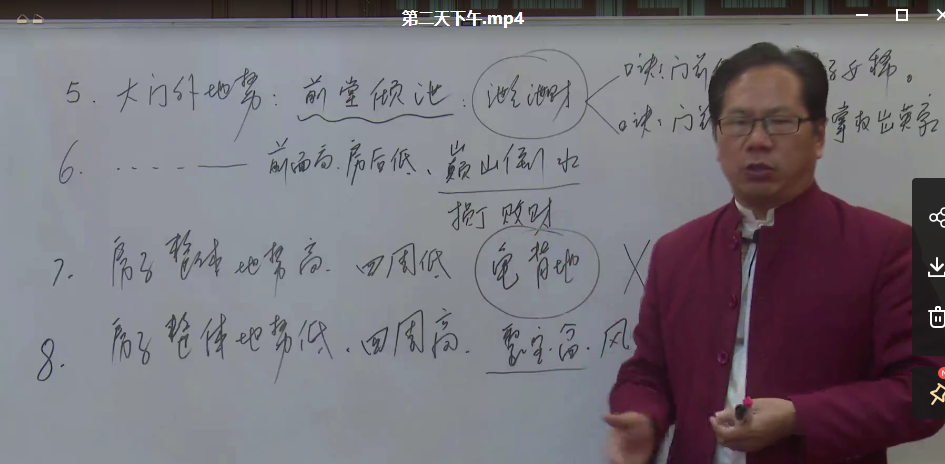 第二天下午.mp4
5. 大门外地势：前堂倾泄：泄财
口诀：门前
口诀：门前
6. ······—— 前面高.房后低、巅山倒水
损丁败财
7. 房子整体地势高、四周低 龟背地 ×
8. 房子整体地势低、四周高. 聚宝盆.风